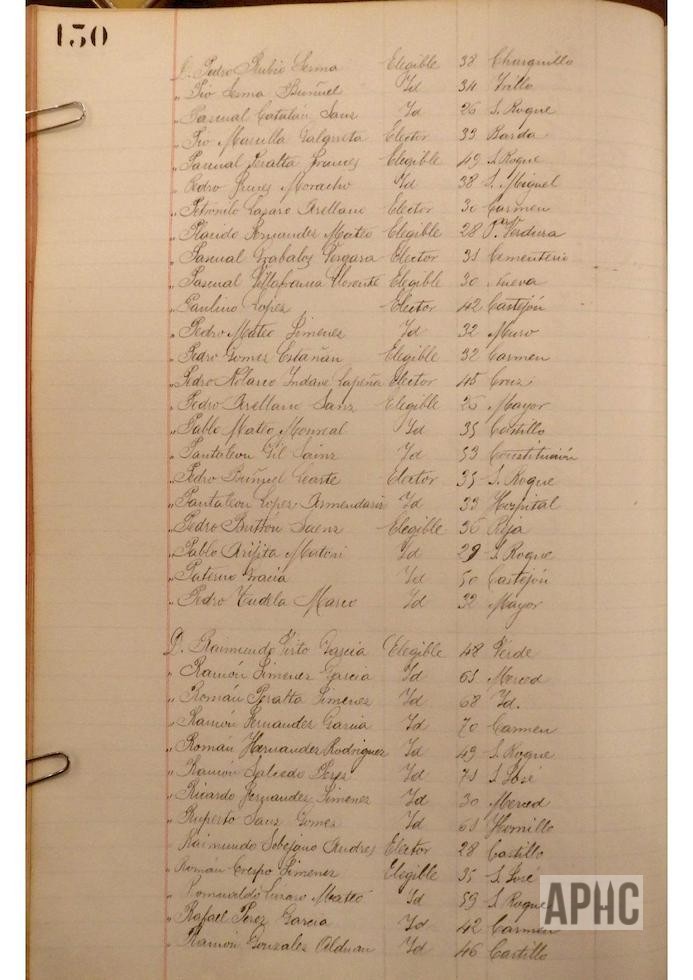 130
D. Pedro Rubio Serna Elegible 38 Charquillo
" Pio Serna Buñuel Id 34 Trillo
" Pascual Catalán Sanz Id 26 S. Roque
" Pio Marcilla Galarreta Elector 33 Barda
" Pascual Peralta Elegible 49 S. Roque
" Pedro Moracho Id 38 S. Miguel
" Petronilo Lazaro Arellano Elector 30 Carmen
" Placido Fernandez Mateo Elegible 28 Verdura
" Pascual Grabalos Vergara Elector 31 Cementerio
" Pascual Villafranca Llorente Elegible 30 Nueva
" Paulino Lopez Elector 42 Castejón
" Pedro Mateo Jimenez Id 32 Muro
" Pedro Gomez Estañan Elegible 32 Carmen
" Pedro Nolasco Lapeña Elector 45 Cruz
" Pedro Arellano Sanz Elegible 26 Mayor
" Pablo Mateo Monreal Id 35 Castillo
" Pantaleon Gil Sainz Id 53 Constitución
" Pedro Buñuel Ucarte Elector 35 S. Roque
" Pantaleon Lopez Armendariz Id 33 Hospital
" Pedro Buttón Saenz Elegible 36 Reja
" Pablo Arijita Matori Id 29 S. Roque
" Paterno Gracia Id 50 Castejón
" Pedro Tudela Marco Id 32 Mayor
D. Raimundo Virto Garcia Elegible 48 Verde
" Ramón Jimenez Garcia Id 61 Merced
" Román Peralta Jimenez Id 68 Id.
" Ramón Fernandez Garcia Id 70 Carmen
" Román Hernandez Rodriguez Id 49 S. Roque
" Ramón Salcedo Perez Id 71 S. José
" Ricardo Fernandez Jimenez Id 30 Merced
" Ruperto Sanz Gomez Id 61 Hornillo
" Raimundo Sobejano Andres Elector 28 Castillo
" Román Crespo Jimenez Elegible 35 S. José
" Romualdo Lazaro Mateo Id 59 S. Roque
" Rafael Perez Garcia Id 42 Carmen
" Ramón Gonzalez Alduan Id 46 Castillo
APHC